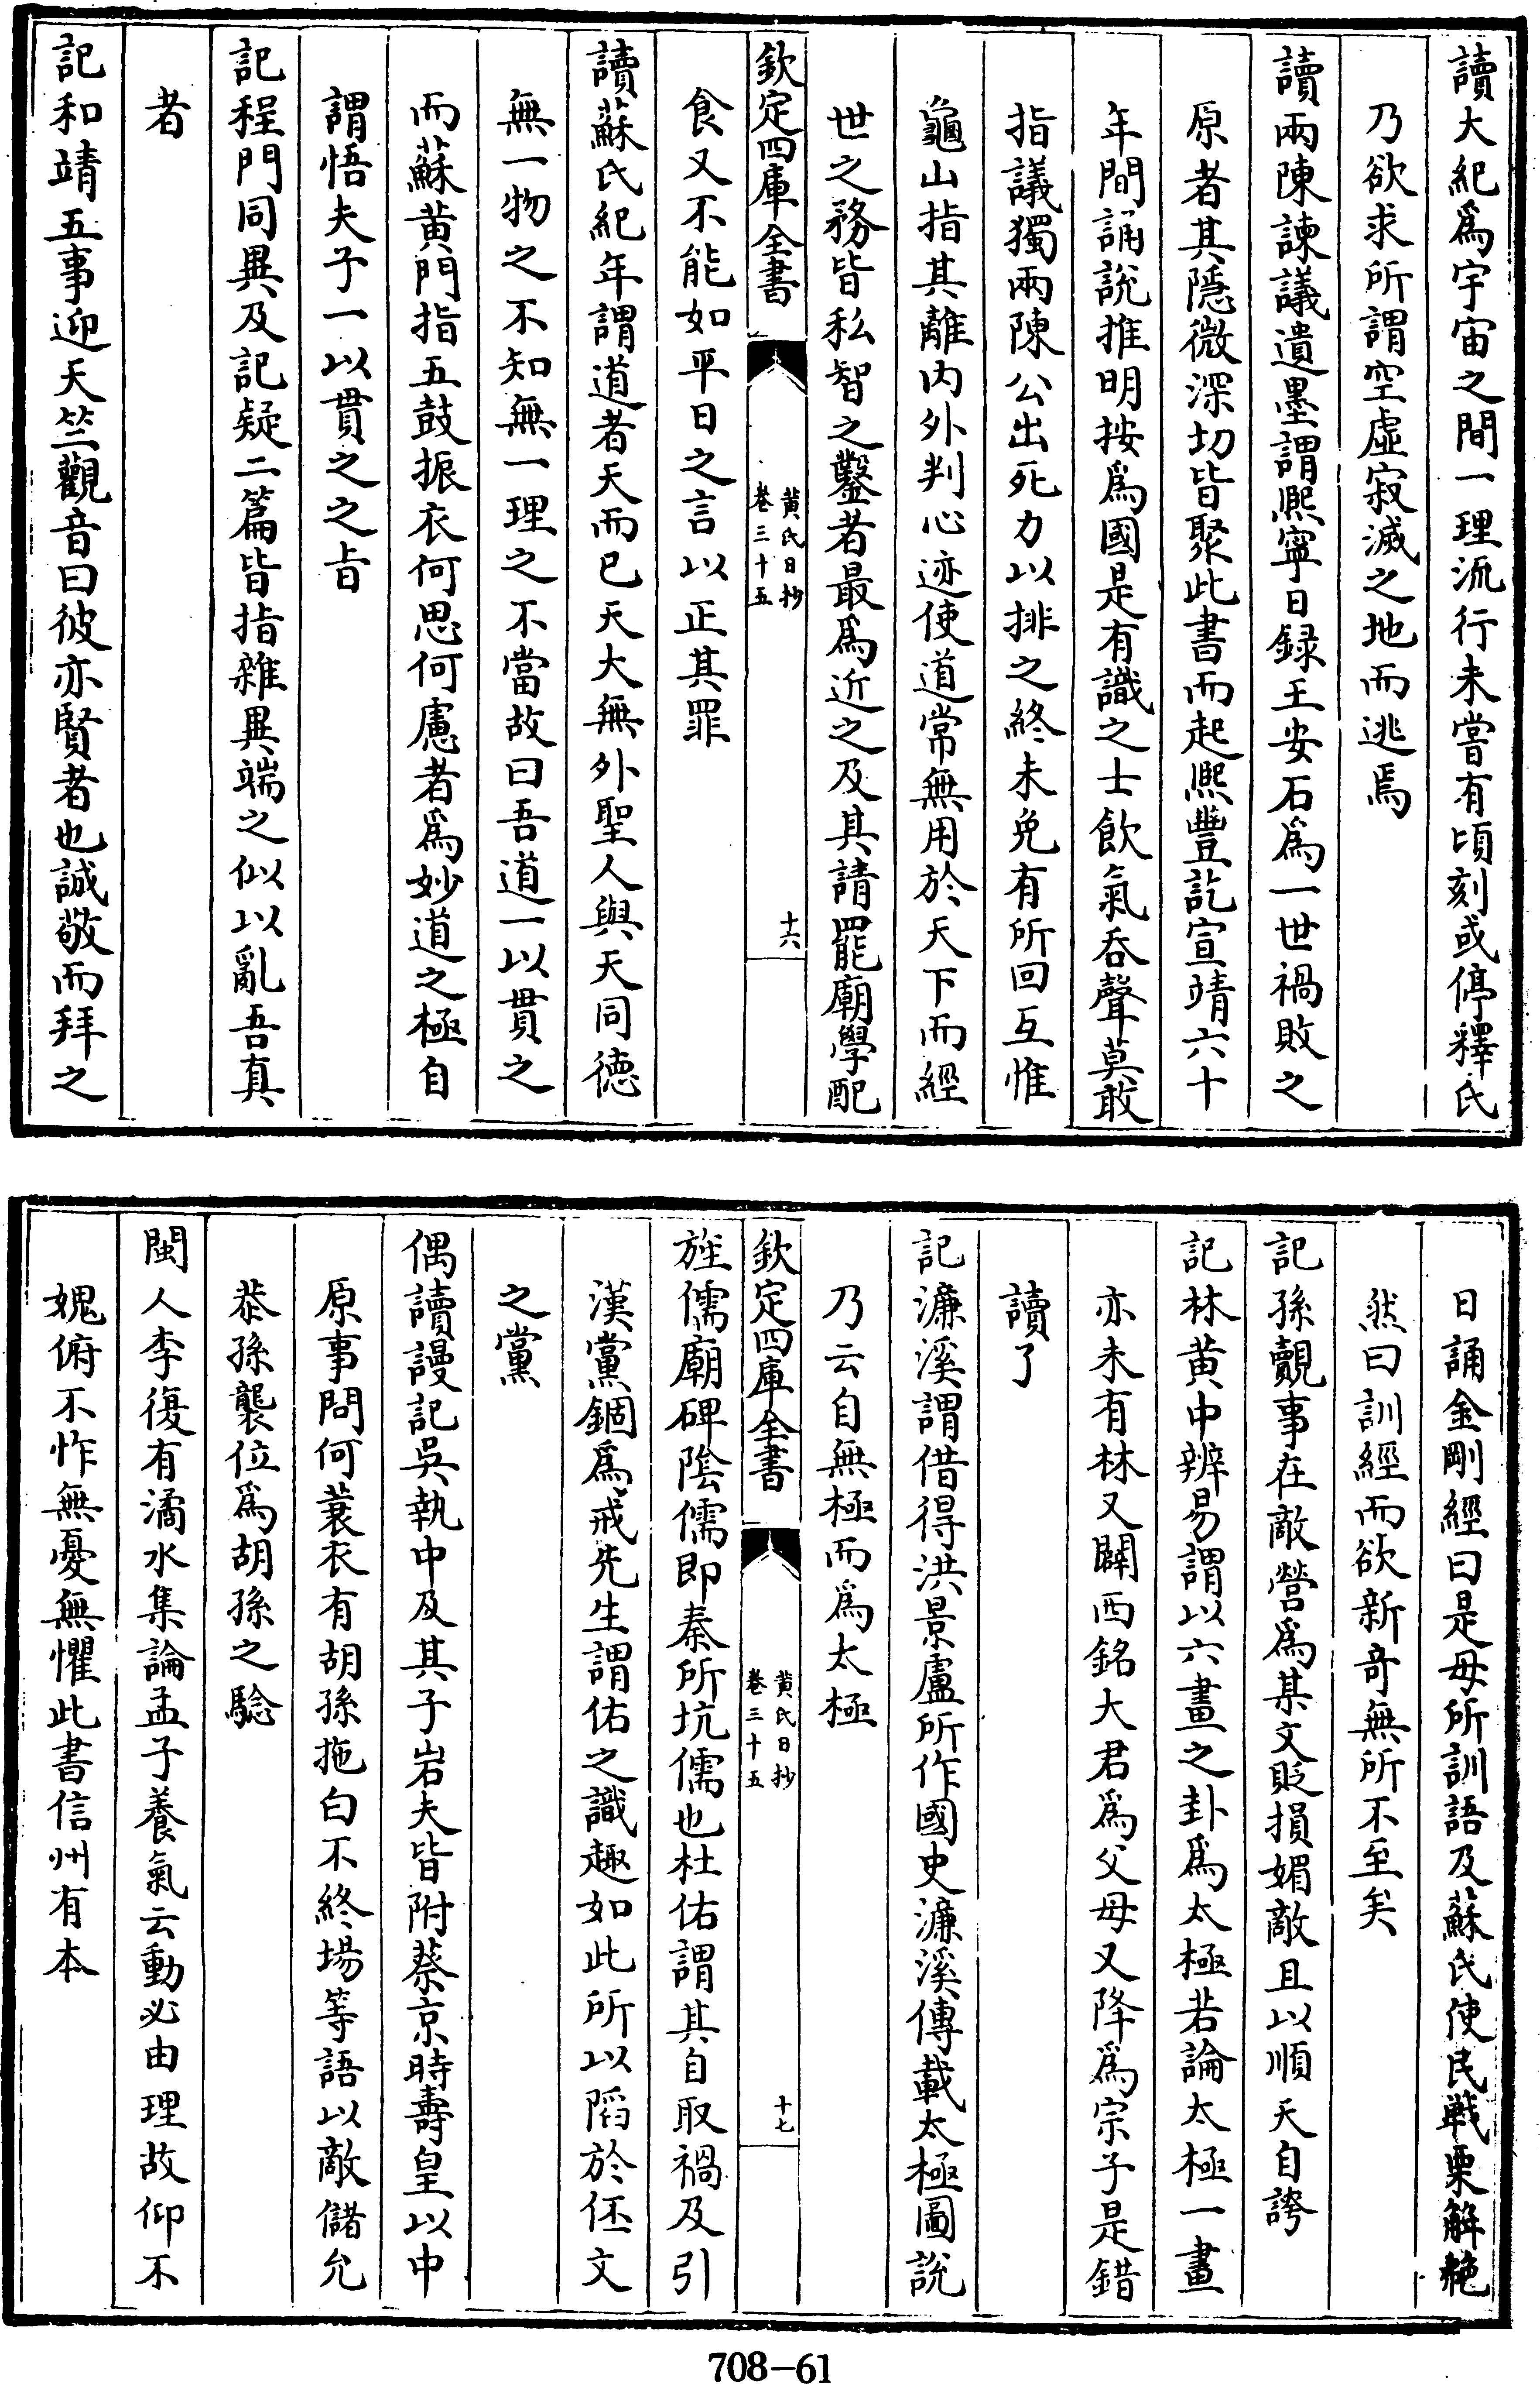 讀大紀為宇宙之間一理流行未嘗有頃刻或停釋氏
乃欲求所謂空虛寂滅之地而逃焉
讀兩陳諫議遺墨謂熈寧日録王安石為一世禍敗之
原者其隱微深切皆聚此書而起熈豐訖宣靖六十
年間誦說推明按為國是有識之士飲氣吞聲莫敢
指議獨兩陳公出死力以排之終未免有所回互惟
龜山指其離内外判心迹使道常無用於天下而經
世之務皆私智之鑿者最為近之及其請罷廟學配
欽定四庫全書
黄氏日抄
卷三十五
十六
食又不能如平日之言以正其罪
讀蘇氏紀年謂道者天而已天大無外聖人與天同徳
無一物之不知無一理之不當故曰吾道一以貫之
而蘇黄門指五鼓振衣何思何慮者為妙道之極自
謂悟夫子一以貫之之旨
記程門同異及記疑二篇皆指雜異端之似以亂吾真
者
記和靖五事迎天竺觀音曰彼亦賢者也誠敬而拜之
日誦金剛經曰是母所訓語及蘇氏使民戰栗解艴
然曰訓經而欲新奇無所不至矣
記孫覿事在敵營為某文貶損媚敵且以順天自誇
記林黄中辨易謂以六畫之卦為太極若論太極一畫
亦未有林又闢西銘大君為父母又降為宗子是錯
讀了
記濂溪謂借得洪景盧所作國史濂溪傳載太極圖說
乃云自無極而為太極
欽定四庫全書
黄氏日抄
卷三十五
十七
旌儒廟碑隂儒即秦所坑儒也杜佑謂其自取禍及引
漢黨錮為戒先生謂佑之識趣如此所以䧟於伾文
之黨
偶讀謾記吳執中及其子岩夫皆附蔡京時壽皇以中
原事問何蓑衣有胡孫拖白不終場等語以敵儲允
恭孫襲位為胡孫之騐
閩人李復有潏水集論孟子養氣云動必由理故仰不
媿俯不怍無憂無懼此書信州有本
708-61